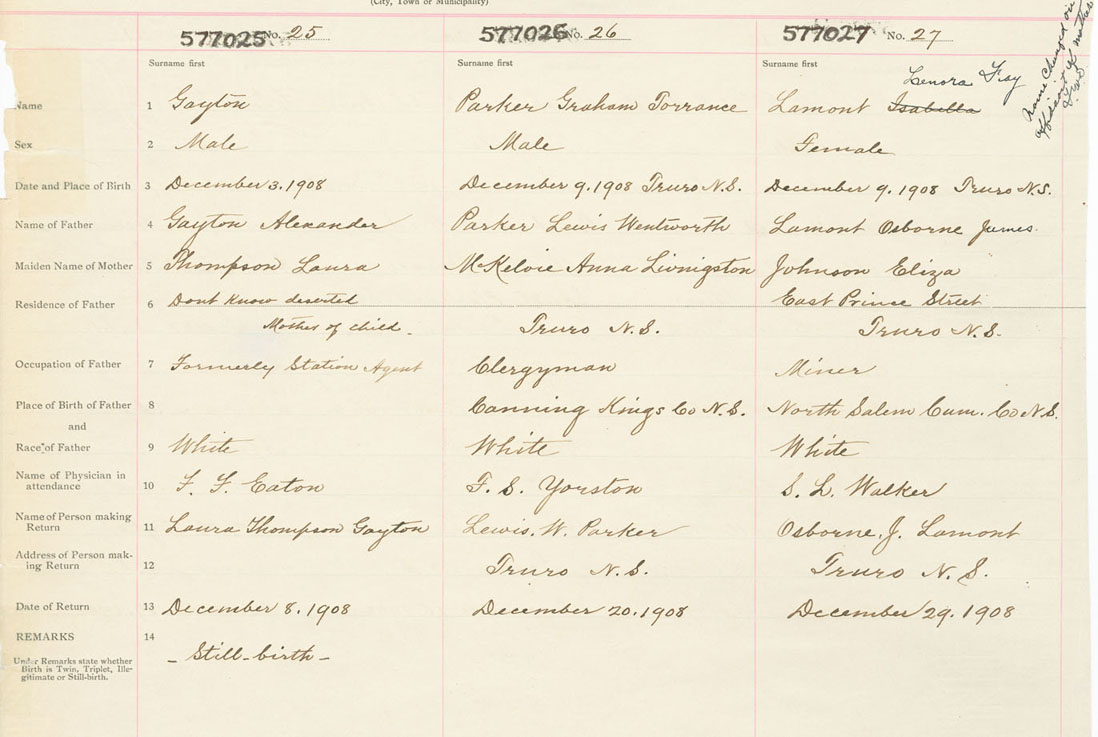 (City, Town or Municipality)
577025 No. 25 577026 No. 26 577027 No. 27
Surname first Surname first Surname first
Lenora Fay
Name 1 Gayton Parker Graham Torrance Lamont Isabella
name changed on
affidavit of mother
Sex 2 Male Male Female
Date and Place of Birth 3 December 3. 1908 December 9. 1908 Truro N.S. December 9. 1908 Truro N.S.
Name of Father 4 Gayton Alexander Parker Lewis Wentworth Lamont Osborne James.
Maiden Name of Mother 5 Thompson Laura McKelvie Anna Livingston Johnson Eliza
Residence of Father 6 Dont know deserted East Prince Street
Mother of child. Truro N.S. Truro N.S.
Occupation of Father 7 Formerly Station Agent Clergyman Miner
Place of Birth of Father 8 Canning Kings Co N.S. North Salem Cum. Co N.S.
and
Race of Father 9 White White White
Name of Physician in
attendance 10 F. F. Eaton F. S. Yorston S. L. Walker
Name of Person making
Return 11 Laura Thompson Gayton Lewis. W. Parker Osborne. J. Lamont
Address of Person mak-
ing Return 12 Truro N.S. Truro N.S.
Date of Return 13 December 8. 1908 December 20. 1908 December 29. 1908
REMARKS 14
Under Remarks state whether
Birth is Twin, Triplet, Ille-
gitimate or Still-birth.
- Still-birth -